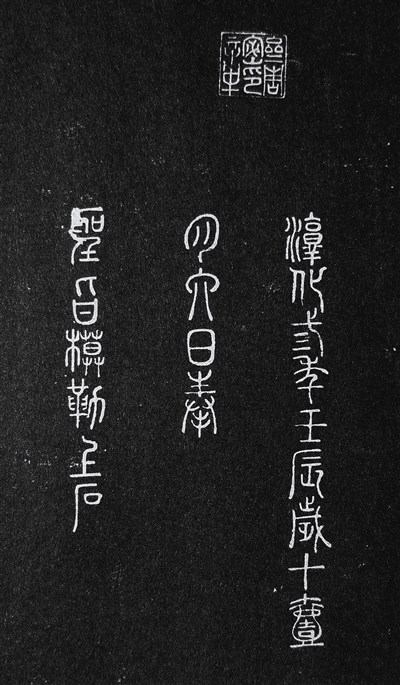 淳化弎年壬辰歲十壹
月六日奉
聖旨模勒上石